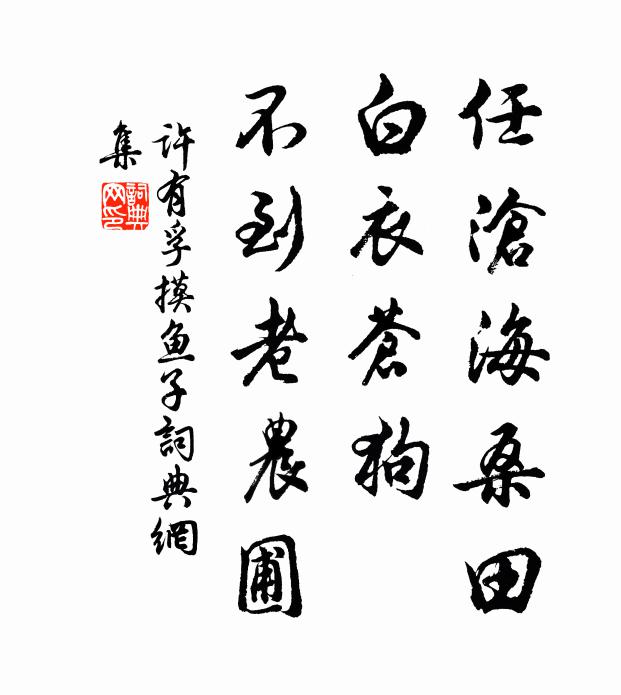 任滄海桑田
白衣蒼狗
不到老農圃
許有孚摸魚子詞典網
集
詞典
网印